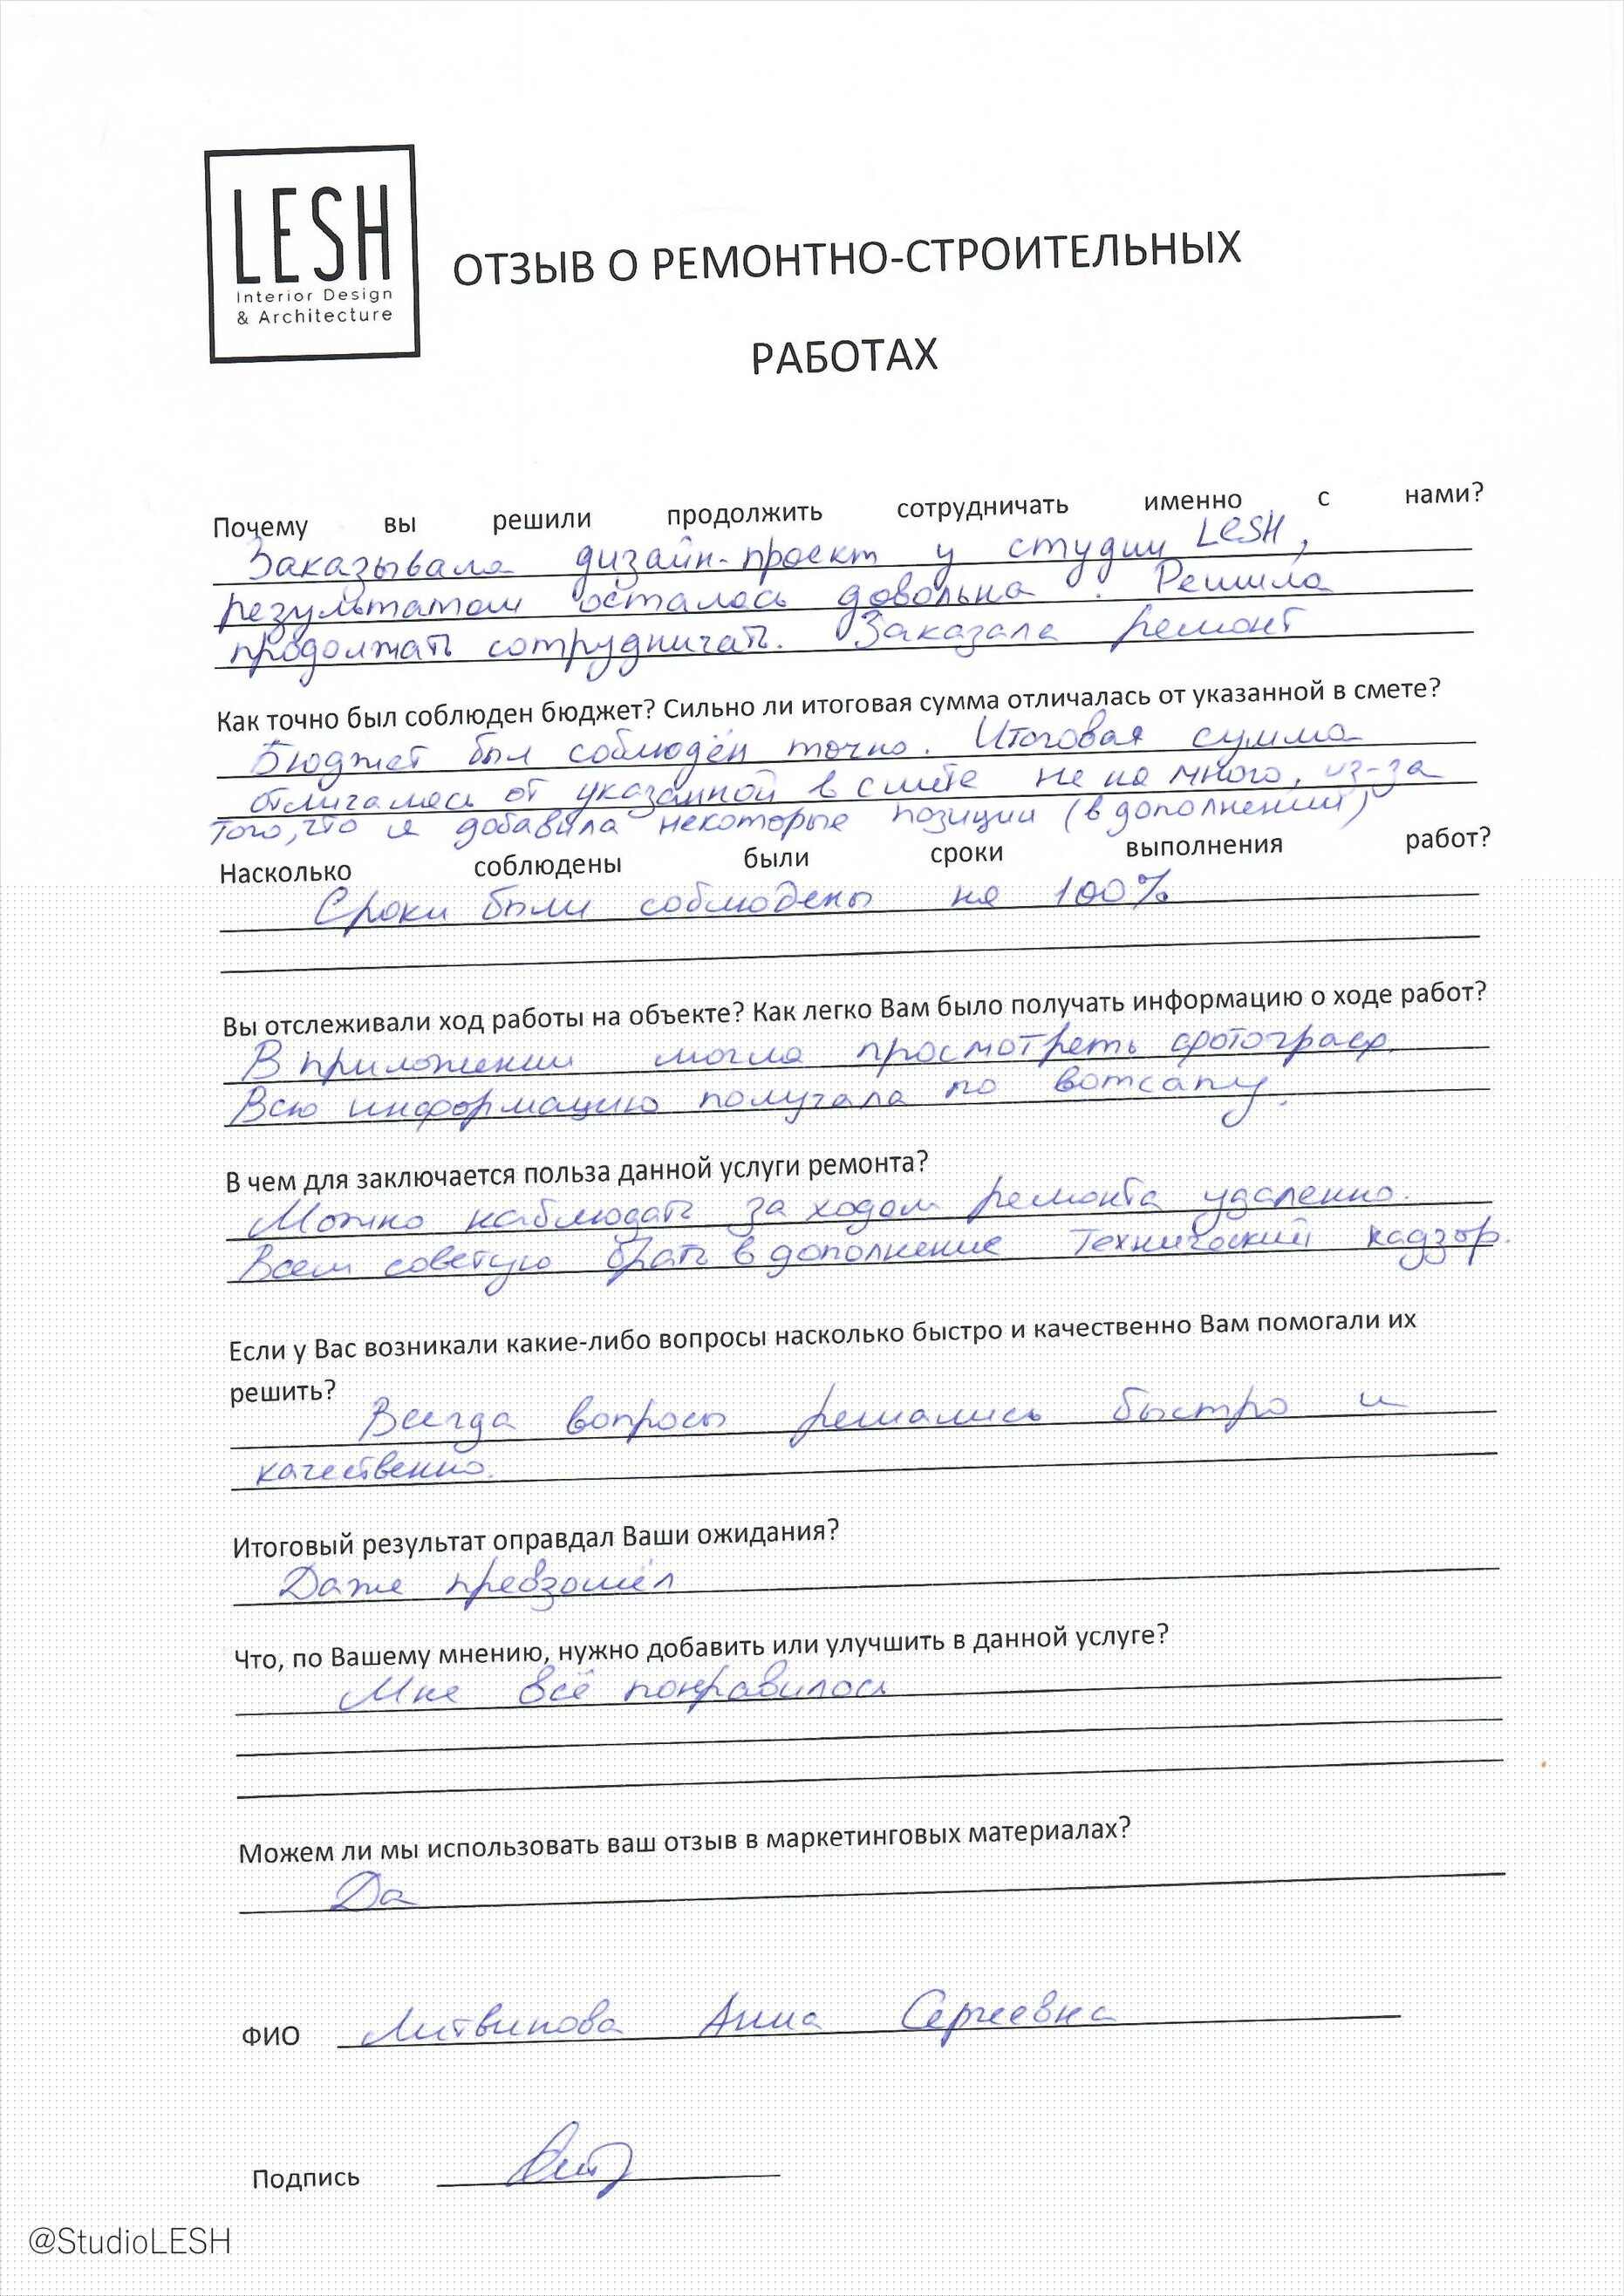 LESH
Interior Design
& Architecture
ОТЗЫВ О РЕМОНТНО-СТРОИТЕЛЬНЫХ
РАБОТАХ
Почему вы решили продолжить сотрудничать именно с нами?
Заказывала дизайн-проект у студии LESH,
результатом осталась довольна. Решила
продолжать сотрудничать. Заказала ремонт
Как точно был соблюден бюджет? Сильно ли итоговая сумма отличалась от указанной в смете?
Бюджет был соблюдён точно. Итоговая сумма
отличалась от указанной в смете не на много, из-за
того, что я добавила некоторые позиции (в дополнении)
Насколько соблюдены были сроки выполнения работ?
Сроки были соблюдены на 100%
Вы отслеживали ход работы на объекте? Как легко Вам было получать информацию о ходе работ?
В приложении могла просмотреть фотограф.
Всю информацию получала по вотсапу.
В чем для заключается польза данной услуги ремонта?
Можно наблюдать за ходом ремонта удаленно.
Всем советую брать в дополнение технический надзор.
Если у Вас возникали какие-либо вопросы насколько быстро и качественно Вам помогали их
решить?
Всегда вопросы решались быстро и
качественно.
Итоговый результат оправдал Ваши ожидания?
Даже превзошёл
Что, по Вашему мнению, нужно добавить или улучшить в данной услуге?
Мне всё понравилось
Можем ли мы использовать ваш отзыв в маркетинговых материалах?
Да
ФИО Литвинова Анна Сергеевна
Подпись
@StudioLESH